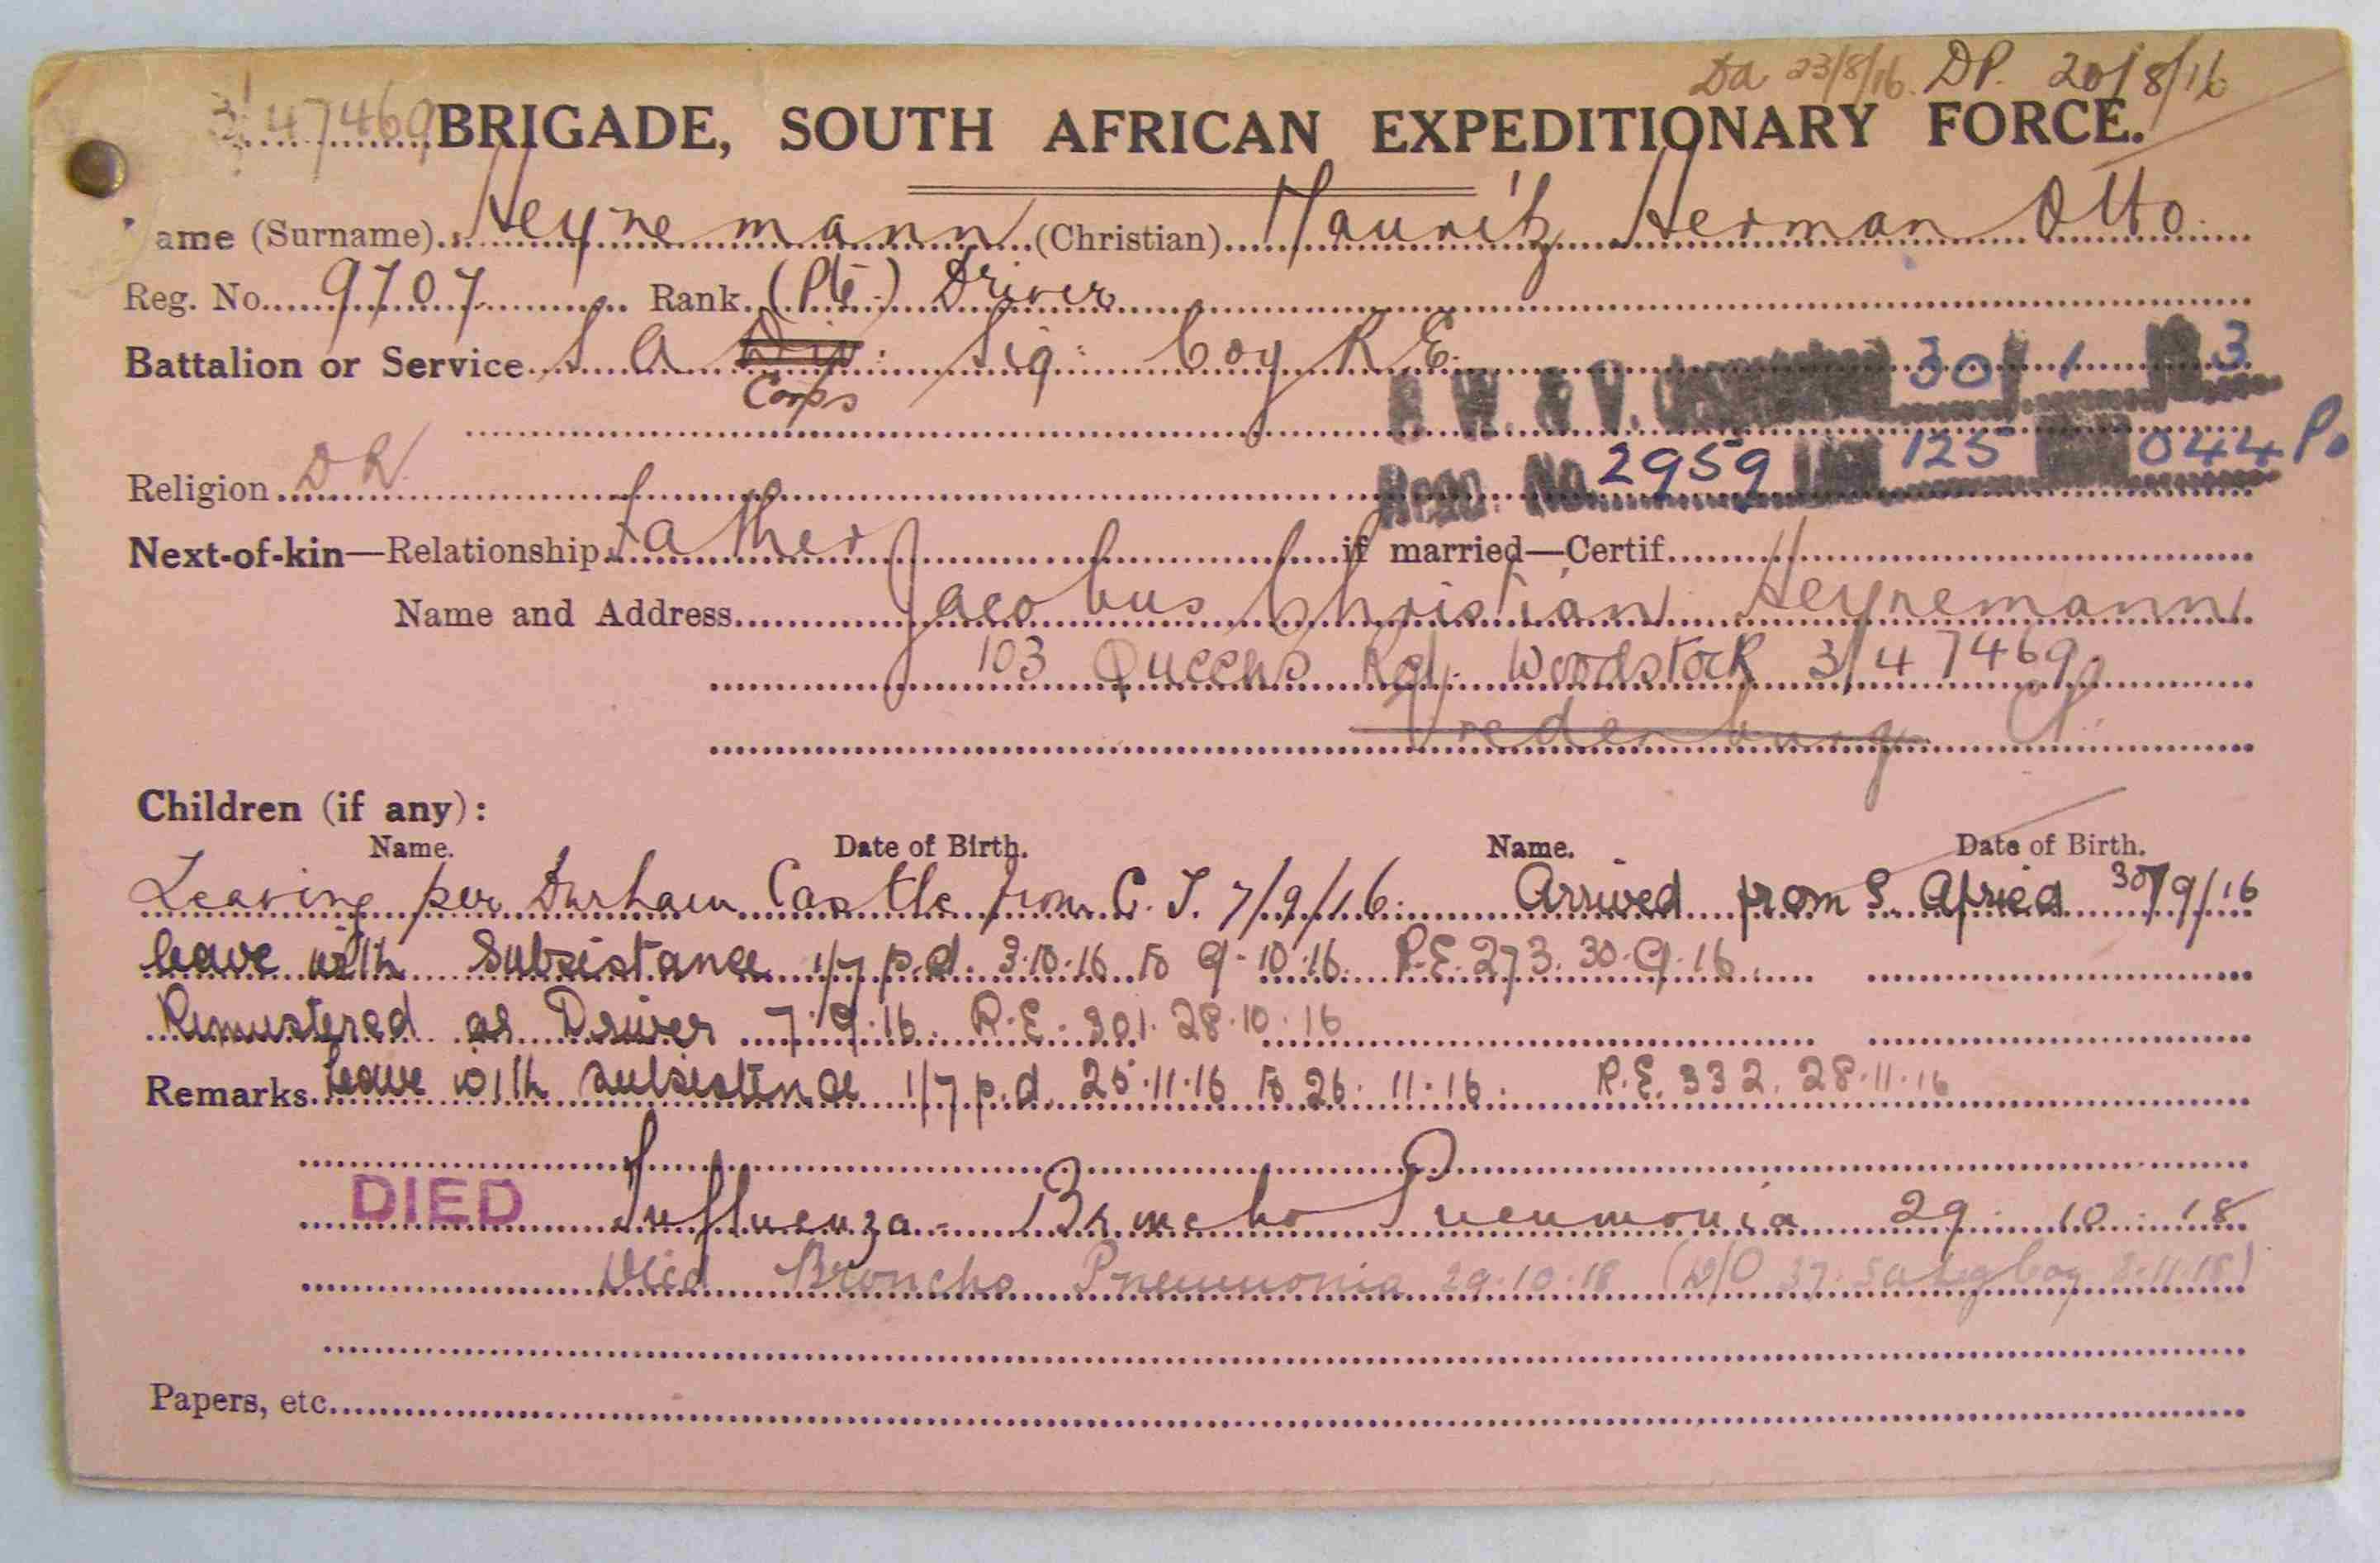 Da 23/8/16. DP. 20/8/16
3/47469 BRIGADE, SOUTH AFRICAN EXPEDITIONARY FORCE.
ame (Surname) Heynemann (Christian) Mauritz Herman Otto.
Reg. No. 9707 Rank (Pte.) Driver
Battalion or Service S A Div: Sig: Coy R.E. 30/1 3
Corps
Religion D R Regn. No. 2959 125 044 Po
Next-of-kin—Relationship father if married—Certif.
Name and Address Jacobus Christian Heynemann
103 Queens Rd. Woodstock 3/47469
Vredenburg
Children (if any):
Name. Date of Birth. Name. Date of Birth.
Leaving per Durham Castle from C.T. 7/9/16. Arrived from S. Africa 30/9/16
leave with Subsistance 1/7 p.d. 3.10.16 to 9.10.16. R.E. 273. 30.9.16.
Remustered as Driver 7.9.16. R.E. 301. 28.10.16
Remarks leave with subsistence 1/7 p.d. 25.11.16 to 26.11.16. R.E. 332. 28.11.16
DIED Influenza - Broncho Pneumonia 29.10.18
Died Broncho Pneumonia 29.10.18 (D/O 37. Sa Sig Coy 2.11.18)
Papers, etc.